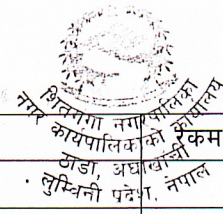 शितगंगा नगरपालिका
नगर कार्यपालिकाको कार्यालय
रकम
ठाडा, अर्घाखाँची
लुम्बिनी प्रदेश, नेपाल